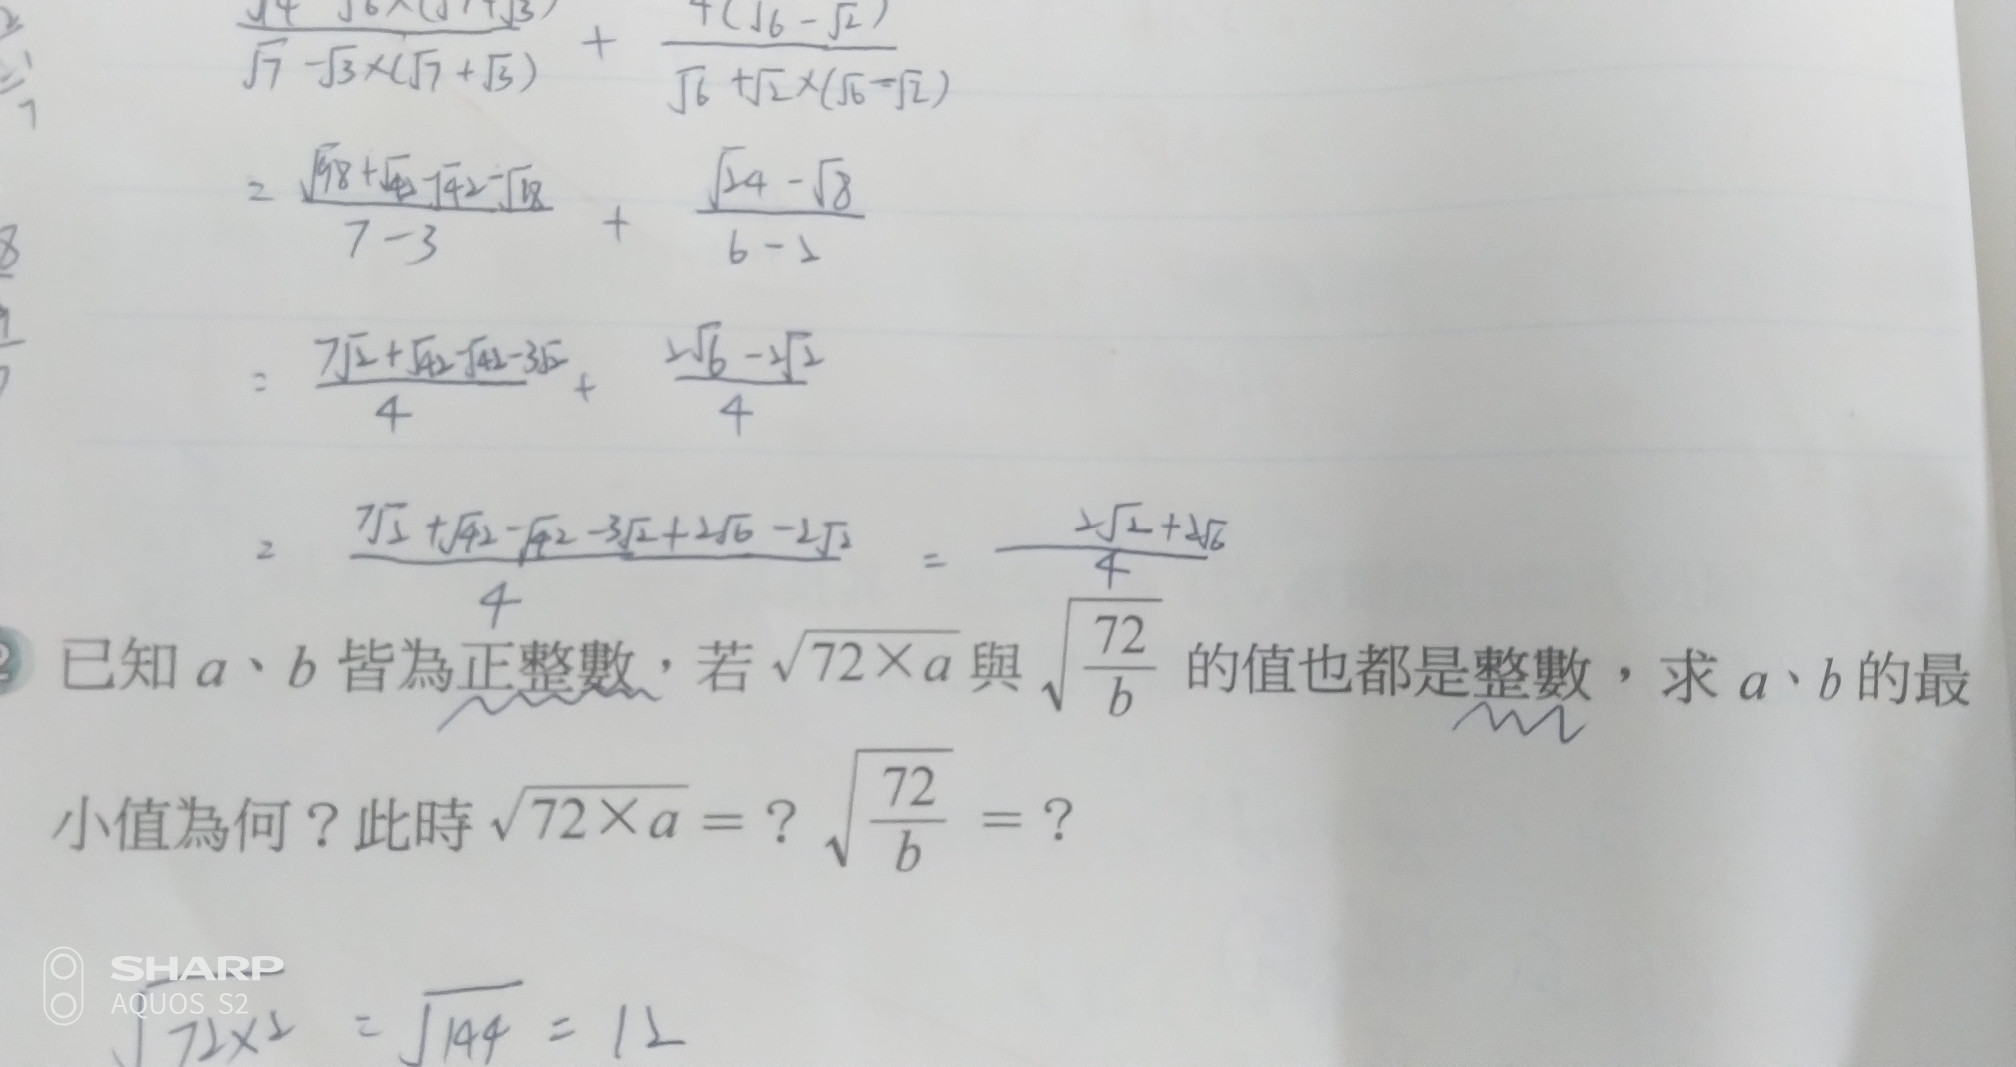 √7 -√3×(√7+√3) + √6 +√2×(√6-√2)
= √98+√42-√42-√18 / 7-3 + √24-√8 / 6-2
= 7√2+√42-√42-3√2 / 4 + 2√6-2√2 / 4
= 7√2+√42-√42-3√2+2√6-2√2 / 4 = 2√2+2√6 / 4
已知 a、b 皆為正整數，若 √72×a 與 √72/b 的值也都是整數，求 a、b 的最
小值為何？此時 √72×a = ? √72/b = ?
SHARP
AQUOS S2
√72×2 = √144 = 12